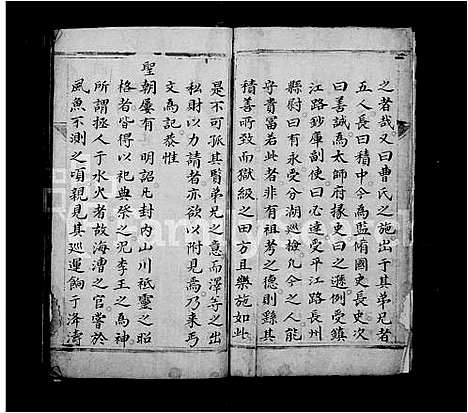 之者哉又曰曹氏之施出于其弟兄者
五人長曰積中今為監脩國史長史次
曰善誠為太師府掾史曰之遜例受鎮
江路鈔庫副使曰必達受平江路長州
縣尉曰有永受分湖巡檢凡今之人能
守貴冨若此者非有祖考之德則繇其
積善所致而獄級之田方且樂施如此
是不可孤其賢弟兄之意而澤等之出
私財以力請者亦欲以附見焉乃来丐
文為記恭惟
聖朝屡有 明詔凡封内山川祗靈之昭
格者皆得以祀典祭之况李王之為神
所謂拯人于水火者故海漕之官嘗於
風魚不測之頃親見其廵運餉于洚濤